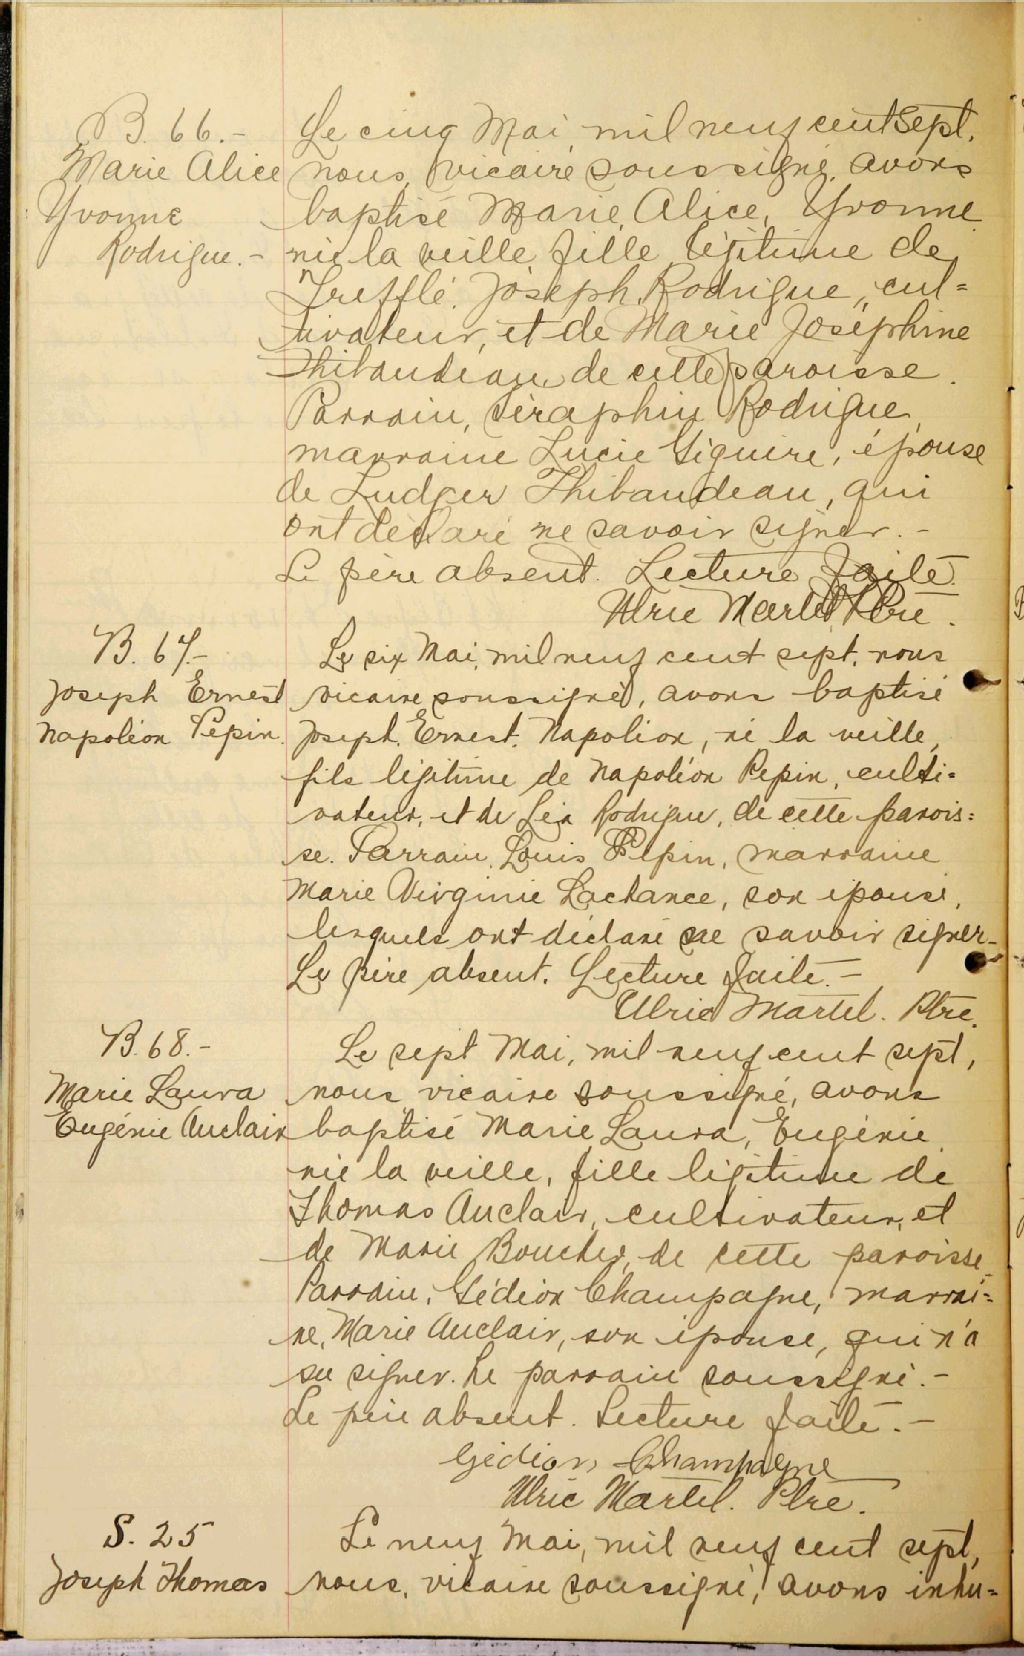 B. 66.-
Marie Alice
Yvonne
Rodrigue.-
Le cinq Mai mil neuf cent Sept,
nous, vicaire soussigné, avons
baptisé Marie, Alice, Yvonne
née la veille fille légitime de
Trefflé Joseph Rodrigue, cul=
tivateur, et de Marie Joséphine
Thibaudeau, de cette paroisse.
Parrain, Séraphin Rodrigue,
marraine Lucie Giguère, épouse
de Ludger Thibaudeau, qui
ont déclaré ne savoir signer.-
Le père absent. Lecture faite.
Ulric Martel Ptre.
B. 67.-
Joseph Ernest
Napoléon Pepin.
Le six Mai, mil neuf cent sept, nous
vicaire soussigné, avons baptisé
Joseph, Ernest, Napoléon, né la veille,
fils légitime de Napoléon Pepin, culti=
vateur, et de Léa Rodrigue, de cette parois=
se. Parrain, Louis Pepin, marraine
Marie Virginie Lachance, son épouse,
lesquels ont déclaré ne savoir signer-
Le père absent. Lecture faite.-
Ulric Martel. Ptre.
B. 68.-
Marie Laura
Eugénie Auclair
Le sept Mai, mil neuf cent sept,
nous vicaire soussigné, avons
baptisé Marie Laura, Eugénie
née la veille, fille légitime de
Thomas Auclair, cultivateur, et
de Marie Boucher, de cette paroisse-
Parrain, Gédéon Champagne, marrai=
ne, Marie Auclair, son épouse, qui n'a
su signer. Le parrain soussigné.-
Le père absent. Lecture faite.-
Gédéon Champagne
Ulric Martel. Ptre.
S. 25
Joseph Thomas
Le neuf Mai, mil neuf cent sept,
nous, vicaire soussigné, avons inhu=